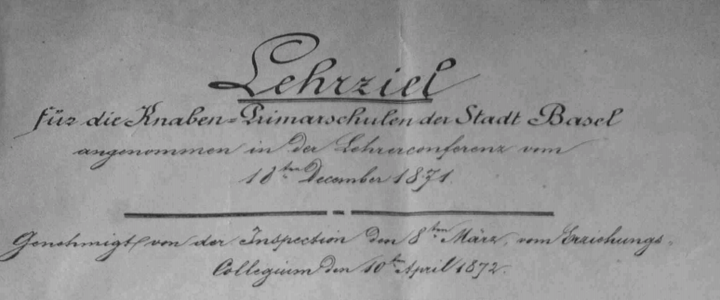 Lehrziel
für die Knaben=Primarschulen der Stadt Basel
angenommen in der Lehrerconferenz vom
18ten December 1871.
Genehmigt von der Inspection den 8ten März, vom Erziehungs-
Collegium den 10ten April 1872.